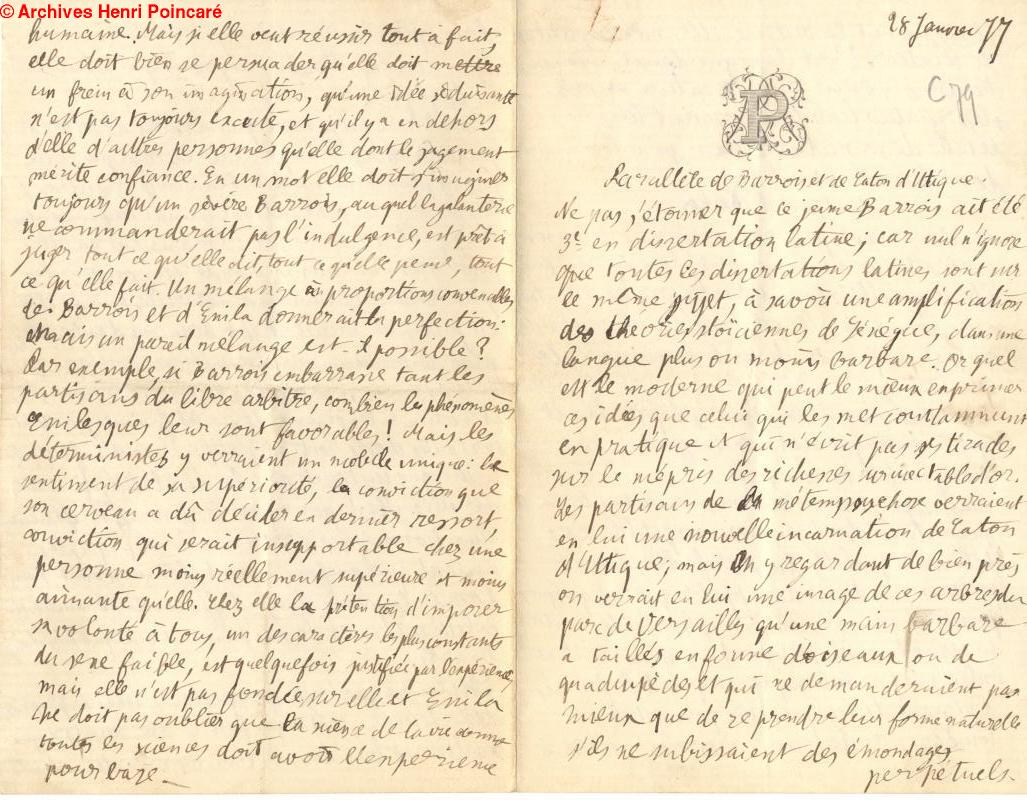 © Archives Henri Poincaré
28 Janvier 77
C 79
P
Parallèle de Barrois et de Caton d'Uttique.
Ne pas s'étonner que ce jeune Barrois ait été
3e en dissertation latine ; car nul n'ignore
que toutes les dissertations latines sont sur
le même sujet, à savoir une amplification
des théories stoïciennes de Sénèque, dans une
langue plus ou moins barbare. Or quel
est le moderne qui peut le mieux exprimer
ces idées que celui qui les met constamment
en pratique et qui n'écrit pas ses tirades
sur le mépris des richesses sur une table d'or.
Les partisans de la métempsychose verraient
en lui une nouvelle incarnation de Caton
d'Uttique ; mais en y regardant de bien près
on verrait en lui une image de ces arbres du
parc de Versailles qu'une main barbare
a taillés en forme d'oiseaux ou de
quadrupèdes et qui ne demanderaient pas
mieux que de reprendre leur forme naturelle
s'ils ne subissaient des émondages
perpétuels.
humaine. Mais si elle veut réussir tout à fait,
elle doit bien se persuader qu'elle doit mettre
un frein à son imagination, qu'une idée séduisante
n'est pas toujours exacte, et qu'il y a en dehors
d'elle d'autres personnes qu'elle dont le jugement
mérite confiance. En un mot elle doit s'imaginer
toujours qu'un sévère Barrois, auquel la galanterie
ne commanderait pas l'indulgence, est prêt à
juger tout ce qu'elle dit, tout ce qu'elle pense, tout
ce qu'elle fait. Un mélange en proportions convenables
de Barrois et d'Enila donnerait la perfection :
Mais un pareil mélange est-il possible ?
Par exemple, si Barrois embarrasse tant les
partisans du libre arbitre, combien les phénomènes
Enilesques leur sont favorables ! Mais les
déterministes y verraient un mobile unique : le
sentiment de sa supériorité, la conviction que
son cerveau a dû décider en dernier ressort,
conviction qui serait insupportable chez une
personne moins réellement supérieure et moins
aimante qu'elle. Chez elle la prétention d'imposer
sa volonté à tous, un des caractères les plus constants
du sexe faible, est quelquefois justifiée par l'expérience,
mais elle n'est pas fondée sur elle et Enila
ne doit pas oublier que la science de la vie comme
toutes les sciences doit avoir l'expérience
pour base _